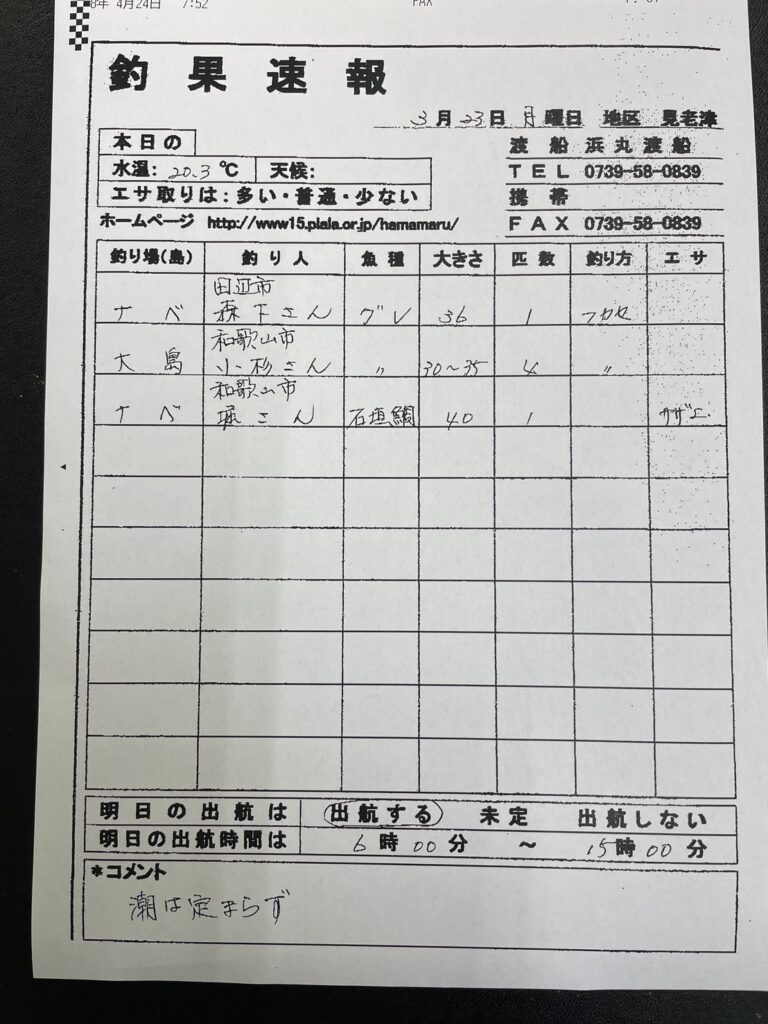 8年 4月24日 7:52 FAX
釣果速報
3月23日 月曜日 地区 見老津
本日の
渡船 浜丸渡船
水温: 20.3℃ 天候:
TEL 0739-58-0839
エサ取りは:多い・普通・少ない
携帯
ホームページ http://www15.plala.or.jp/hamamaru/
FAX 0739-58-0839
釣り場(島) 釣り人 魚種 大きさ 匹数 釣り方 エサ
田辺市
ナベ 森下さん グレ 36 1 フカセ
和歌山市
大島 小杉さん 〃 30〜35 4 〃
和歌山市
ナベ 堀さん 石垣鯛 40 1 サザエ
明日の出航は 出航する 未定 出航しない
明日の出航時間は 6時00分 〜 15時00分
*コメント
潮は定まらず